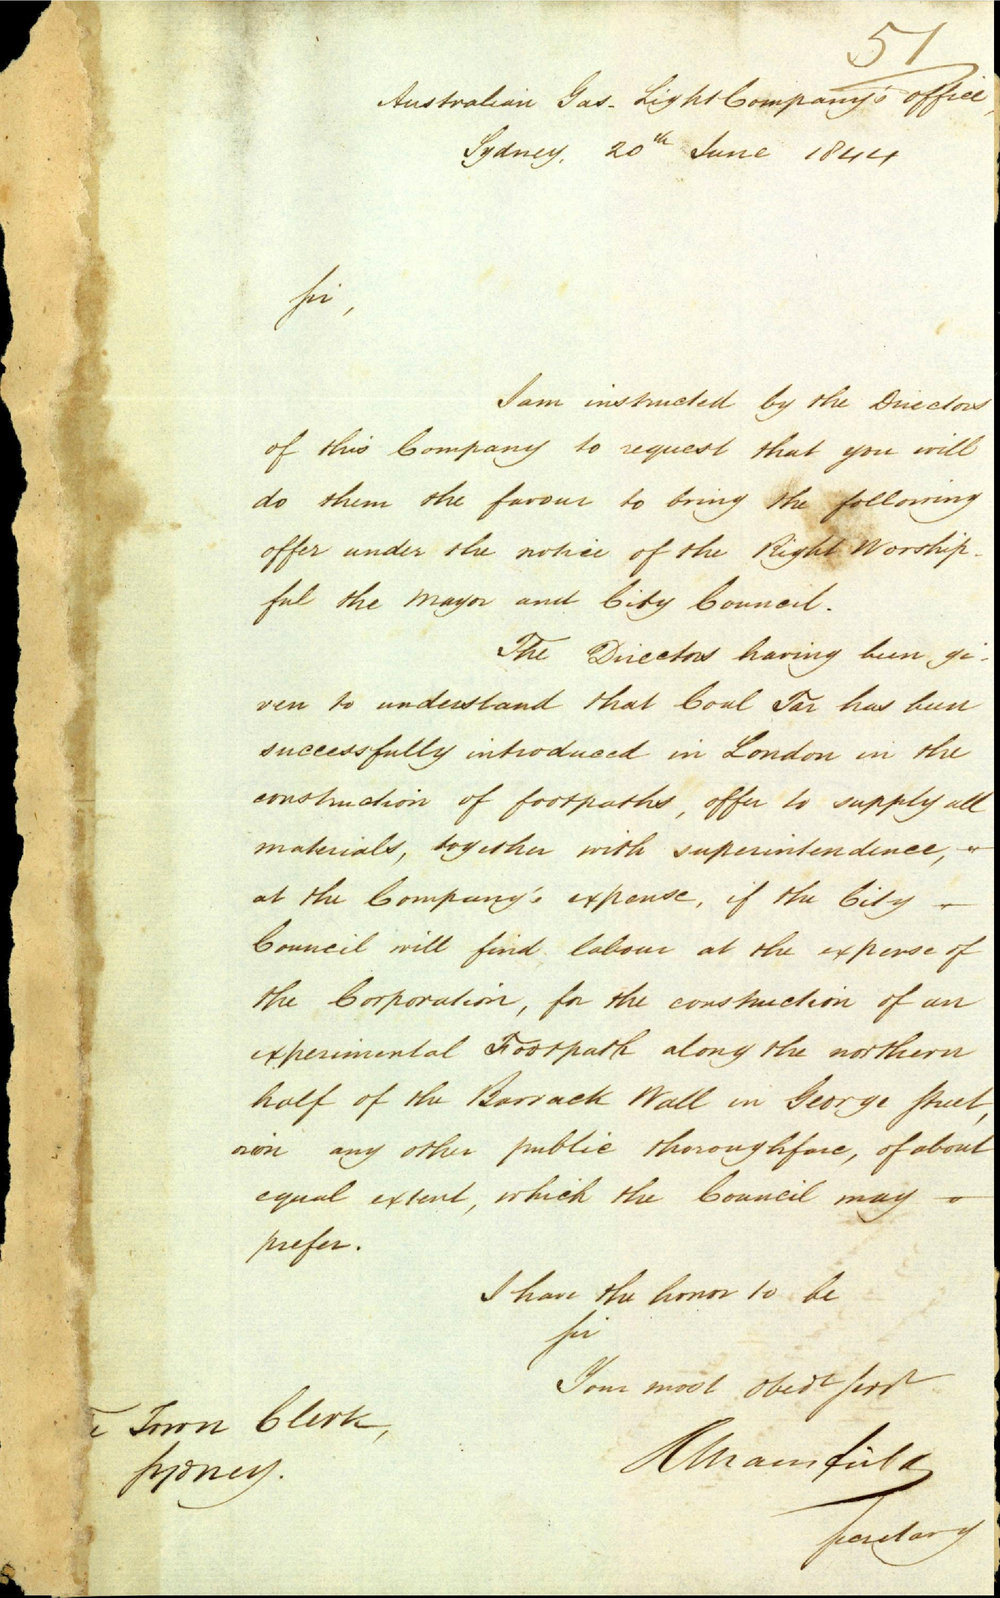 51
Australian Gas-Light Company's office,
Sydney, 20th June 1844
Sir,
I am instructed by the Directors
of this Company to request that you will
do them the favour to bring the following
offer under the notice of the Right Worship-
ful the Mayor and City Council.
The Directors having been gi-
ven to understand that Coal Tar has been
successfully introduced in London in the
construction of footpaths, offer to supply all
materials, together with superintendence,
at the Company's expense, if the City
Council will find labour at the expense of
the Corporation, for the construction of an
experimental Footpath along the northern
half of the Barrack Wall in George Street,
or in any other public thoroughfare, of about
equal extent, which the Council may
prefer.
I have the honor to be
Sir
Your most obedt Servt
Mansfield
Secretary
Town Clerk,
Sydney.